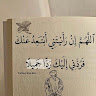 اللَّهُمَّ إِنْ رَأَيْتَنِي أَبْتَعِدُ عَنْكَ
فَرُدَّنِي إِلَيْكَ رَدًّا جَمِيلًا